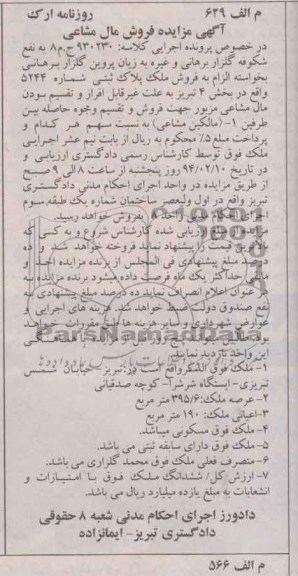 م الف ۶۲۹ روزنامه ارک
آگهی مزایده فروش مال مشاعی
در خصوص پرونده اجرایی کلاسه: ۹۳۰۲۳۰ ج.م۸ به نفع
شکوفه گلزار برهانی و غیره به زیان پروین گلزار برهانی
بخواسته الزام به فروش ملک پلاک ثبتی شماره ۵۲۴۴
واقع در بخش ۴ تبریز به علت غیرقابل افراز و تقسیم بودن
مال مشاعی مزبور جهت فروش و تقسیم وجوه حاصله بین
طرفین ۱- (مالکین مشاعی) به نسبت سهم هر کدام و
پرداخت مبلغ ۵٪ محکوم به ریال از بابت نیم عشر اجرایی
ملک فوق توسط کارشناس رسمی دادگستری ارزیابی و
در تاریخ ۹۴/۰۲/۱۰ روز پنجشنبه از ساعت ۸ الی ۹ صبح
از طریق مزایده در واحد اجرای احکام مدنی دادگستری
تبریز واقع در اول ولیعصر ساختمان شماره یک طبقه سوم
اجرای احکام مدنی واحد ۸ بفروش خواهد رسید.
ارزیابی شده کارشناس شروع و به کسی که
بالاترین قیمت را پیشنهاد نماید فروخته خواهد شد و ده
درصد مبلغ پیشنهادی فی المجلس از برنده مزایده اخذ و
مابقی حداکثر یک ماه فرصت داده میشود برنده مزایده به
هر عنوان اعلام انصراف نماید ده درصد مبلغ پیشنهادی به
نفع صندوق دولت ضبط خواهد شد. هزینه های اجرایی و
عوارض شهرداری و سایر هزینه ها طبق مقررات خواهد
بود
این واحد بازدید نمایند.
۱- ملک فوق الذکر واقع است در: تبریز- خیابان شمس
تبریزی- ایستگاه شرشرا- کوچه صدقیانی
۲- عرصه ملک: ۳۹۵/۶ متر مربع
۳- اعیانی ملک: ۱۹۰ متر مربع
۴- ملک فوق مسکونی میباشد.
۵- ملک فوق دارای سابقه ثبتی می باشد.
۶- متصرف فعلی ملک فوق محمد گلزاری می باشد.
۷- ارزش کل/ ششدانگ ملک فوق با امتیازات و
انشعابات به مبلغ یازده میلیارد ریال می باشد.
دادورز اجرای احکام مدنی شعبه ۸ حقوقی
دادگستری تبریز- ایمانزاده
م الف ۵۶۶